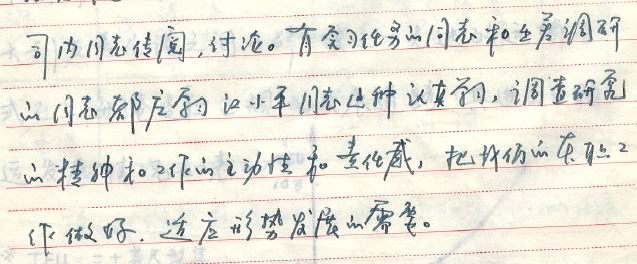 司内同志传阅,讨论。有实习任务的同志和出差调研
的同志都应学习 小平同志这种认真学习,调查研究
的精神和工作的主动性和责任感,把我们的本职工
作做好.适应形势发展的需要。